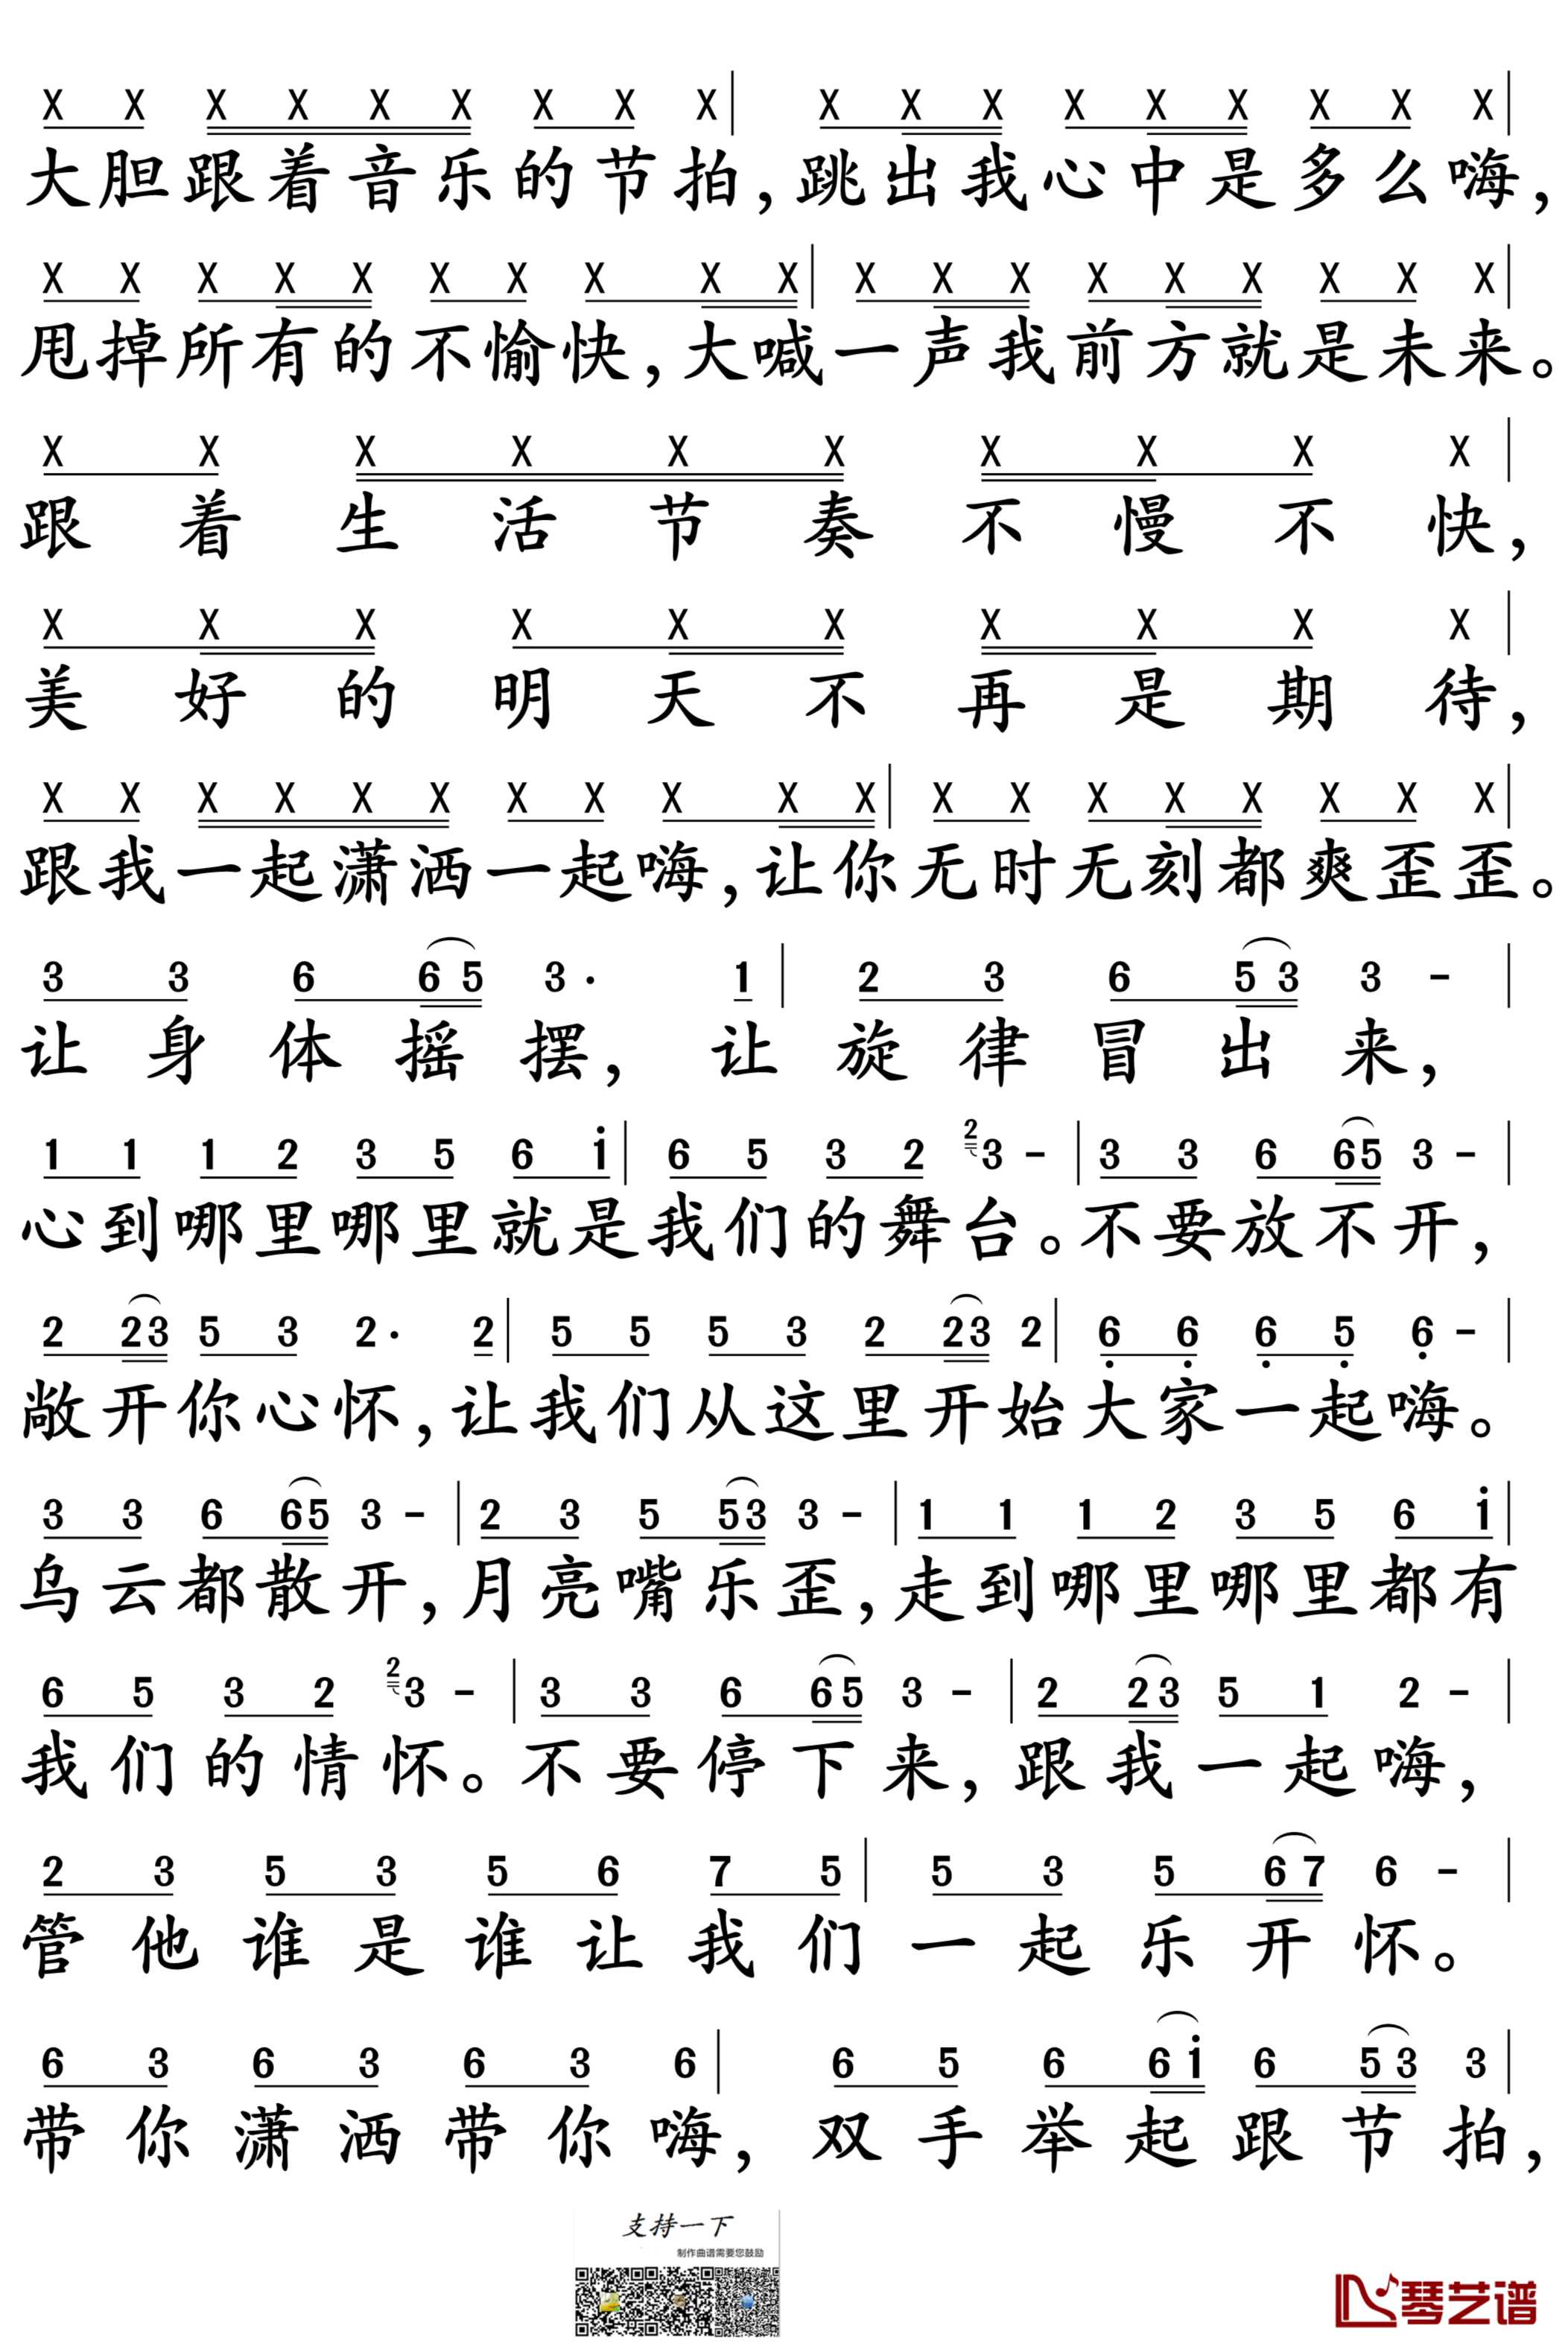 X X X X X X X X X | X X X X X X X X X |
大胆跟着音乐的节拍,跳出我心中是多么嗨,
X X X X X X X X X X | X X X X X X X X X |
甩掉所有的不愉快,大喊一声我前方就是未来。
X X X X X X X X X X |
跟着生活节奏不慢不快,
X X X X X X X X X X |
美好的明天不再是期待,
X X X X X X X X X X X | X X X X X X X X |
跟我一起潇洒一起嗨,让你无时无刻都爽歪歪。
3 3 6 6 5 3 · 1 | 2 3 6 5 3 3 - |
让身体摇摆,让旋律冒出来,
1 1 1 2 3 5 6 i | 6 5 3 2 2 3 - | 3 3 6 6 5 3 - |
心到哪里哪里就是我们的舞台。不要放不开,
2 2 3 5 3 2 · 2 | 5 5 5 3 2 2 3 2 | 6 6 6 5 6 - |
敞开你心怀,让我们从这里开始大家一起嗨。
3 3 6 6 5 3 - | 2 3 5 5 3 3 - | 1 1 1 2 3 5 6 i |
乌云都散开,月亮嘴乐歪,走到哪里哪里都有
6 5 3 2 2 3 - | 3 3 6 6 5 3 - | 2 2 3 5 1 2 - |
我们的情怀。不要停下来,跟我一起嗨,
2 3 5 3 5 6 7 5 | 5 3 5 6 7 6 - |
管他谁是谁让我们一起乐开怀。
6 3 6 3 6 3 6 | 6 5 6 6 i 6 5 3 3 |
带你潇洒带你嗨,双手举起跟节拍,
支持一下
制作曲谱需要您鼓励
琴艺谱